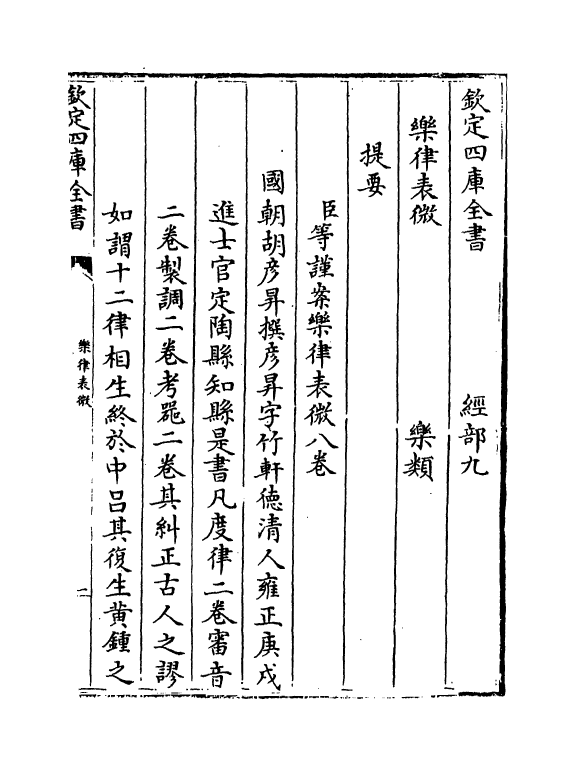 欽定四庫全書 經部九
樂律表微 樂類
提要
臣等謹案樂律表微八卷
國朝胡彦昇撰彦昇字竹軒德清人雍正庚戌
進士官定陶縣知縣是書凡度律二卷審音
二卷製調二卷考器二卷其糾正古人之謬
如謂十二律相生終於中呂其復生黄鍾之
欽定四庫全書 樂律表微 二